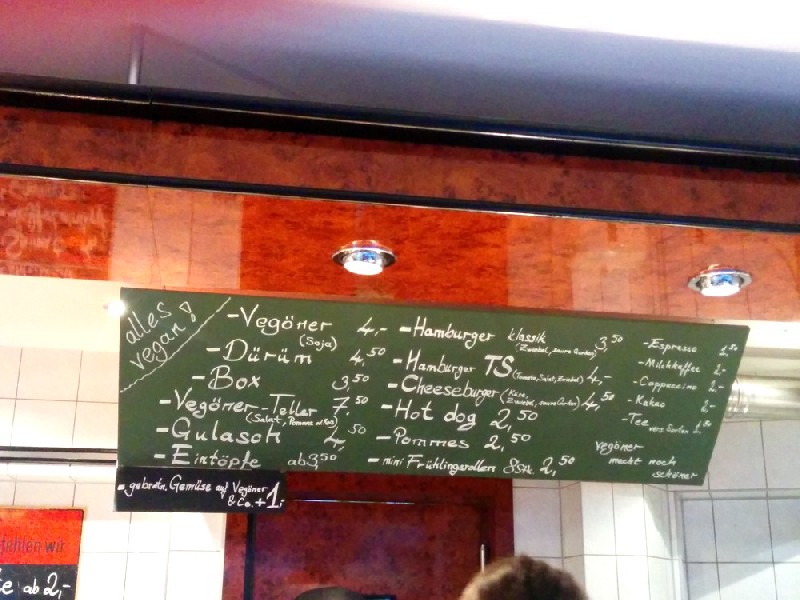 alles
vegan!
- Vegöner 4,-
(Soja)
- Dürüm 4,50
- Box 3,50
- Vegöner-Teller 7,50
(Salat, Pommes
- Gulasch 50
- Eintöpfe ab 3,50
- gebratn. Gemüse auf Vegöner
& Co. + 1,-
- Hamburger klassik 3,50
(Zwiebel, saure Gurken)
- Hamburger TS (Tomate, Salat, Zwiebel) 4,-
- Cheeseburger (Käse,
Zwiebel, saure Gurken) 4,50
- Hot dog 2,50
- Pommes 2,50
- mini Frühlingsrollen 8Stk 2,50
- Espresso
- Milchkaffee 2,-
- Cappuccino 2,-
- Kakao 2,-
- Tee
vers Sorten 1,80
Vegöner
macht noch
schöner
wir
ab 2,-